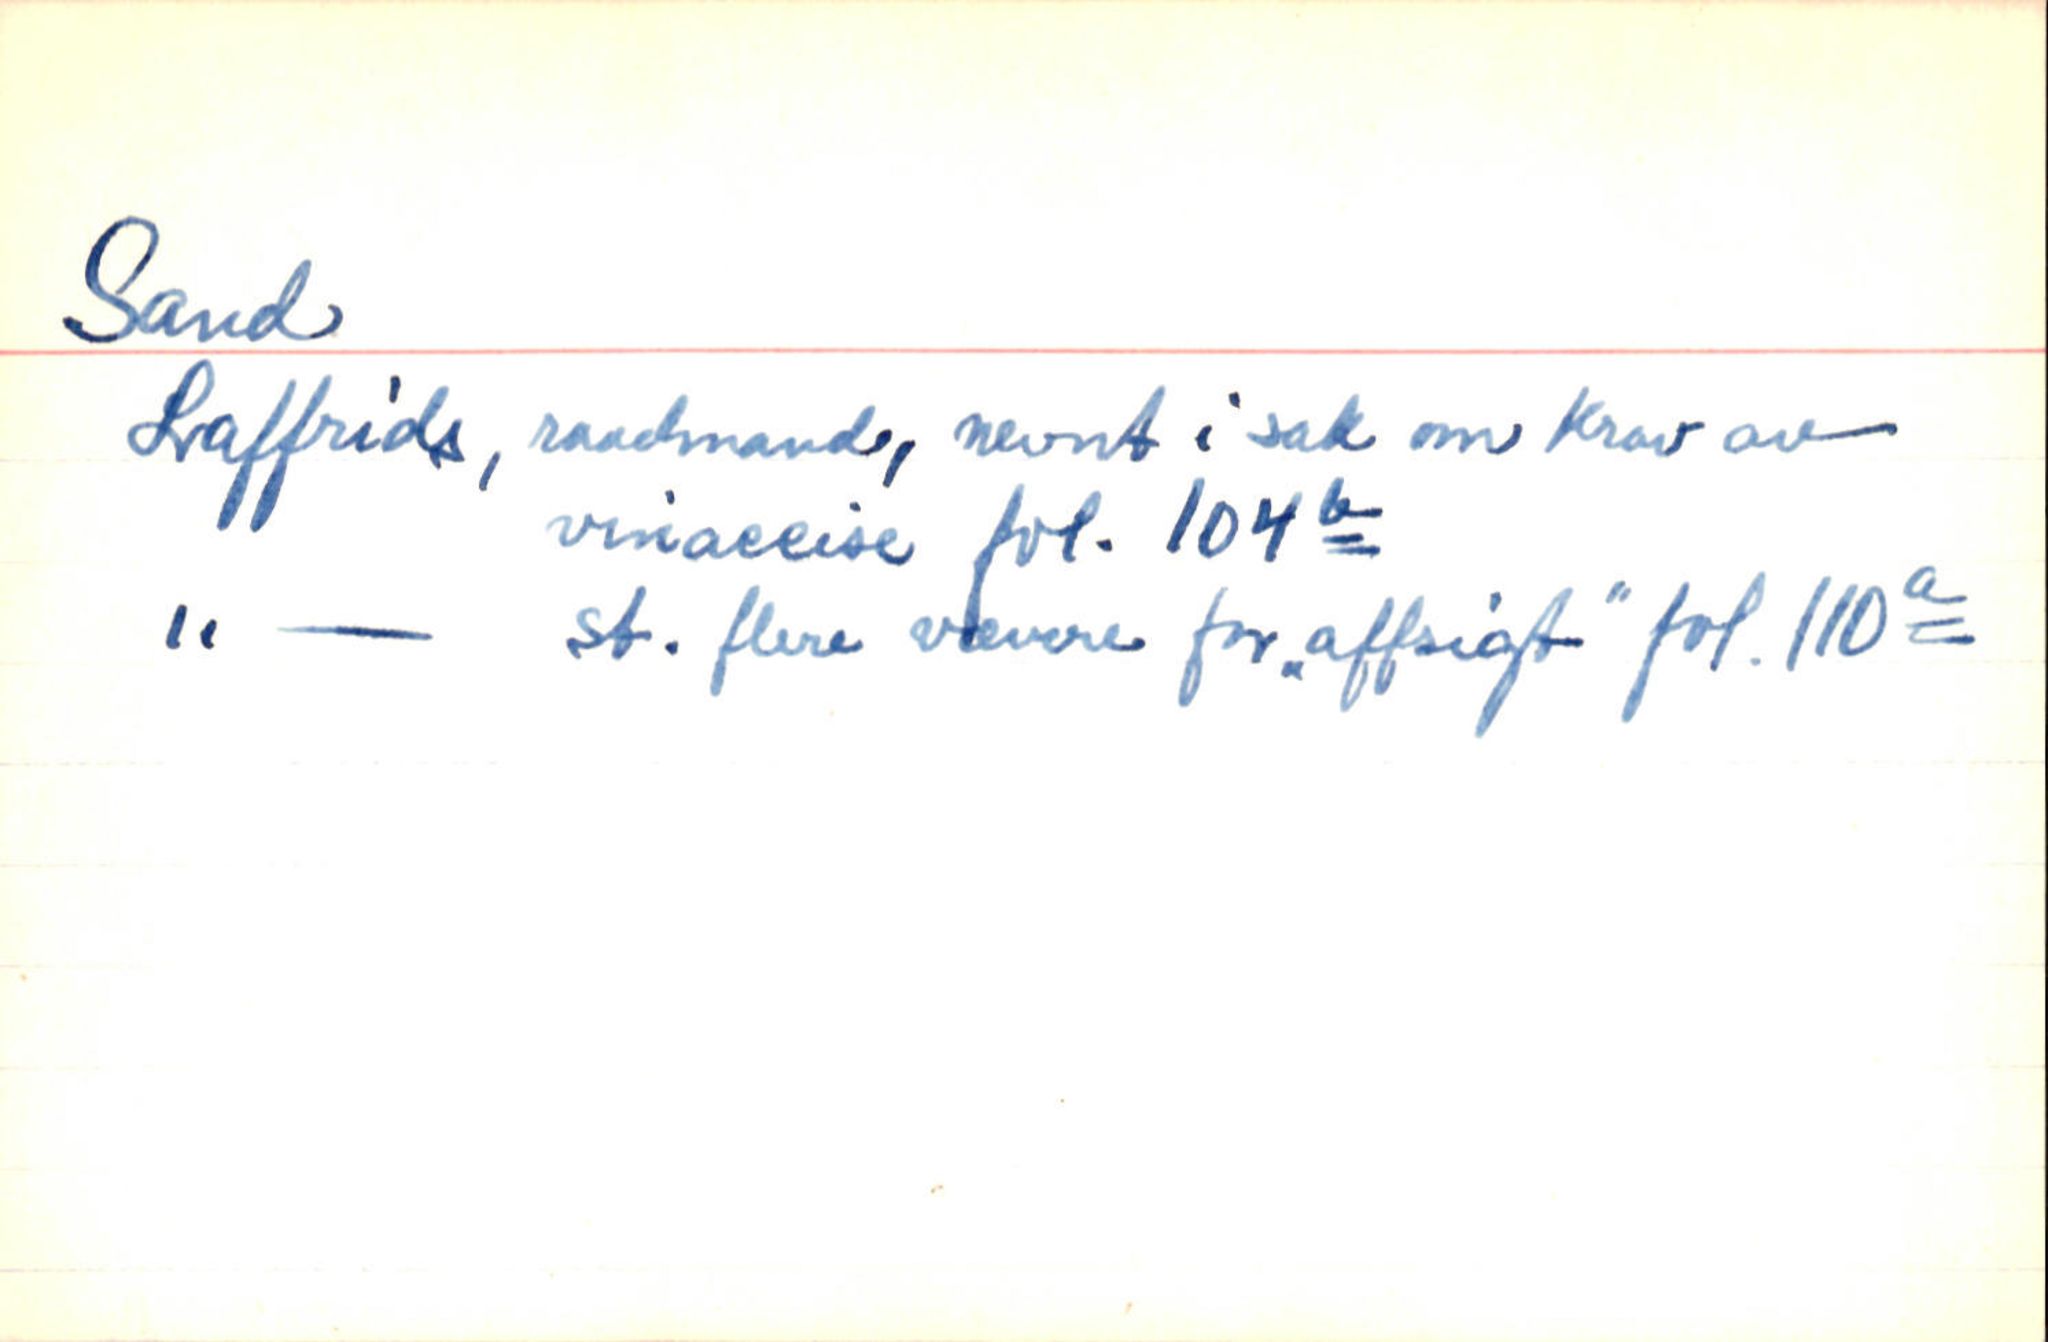 Sand
Laffrids, raadmand, nevnt i sak om krav av
vinaccise fol. 104 b
" — st. flere vævere for „affsigt" fol. 110 a